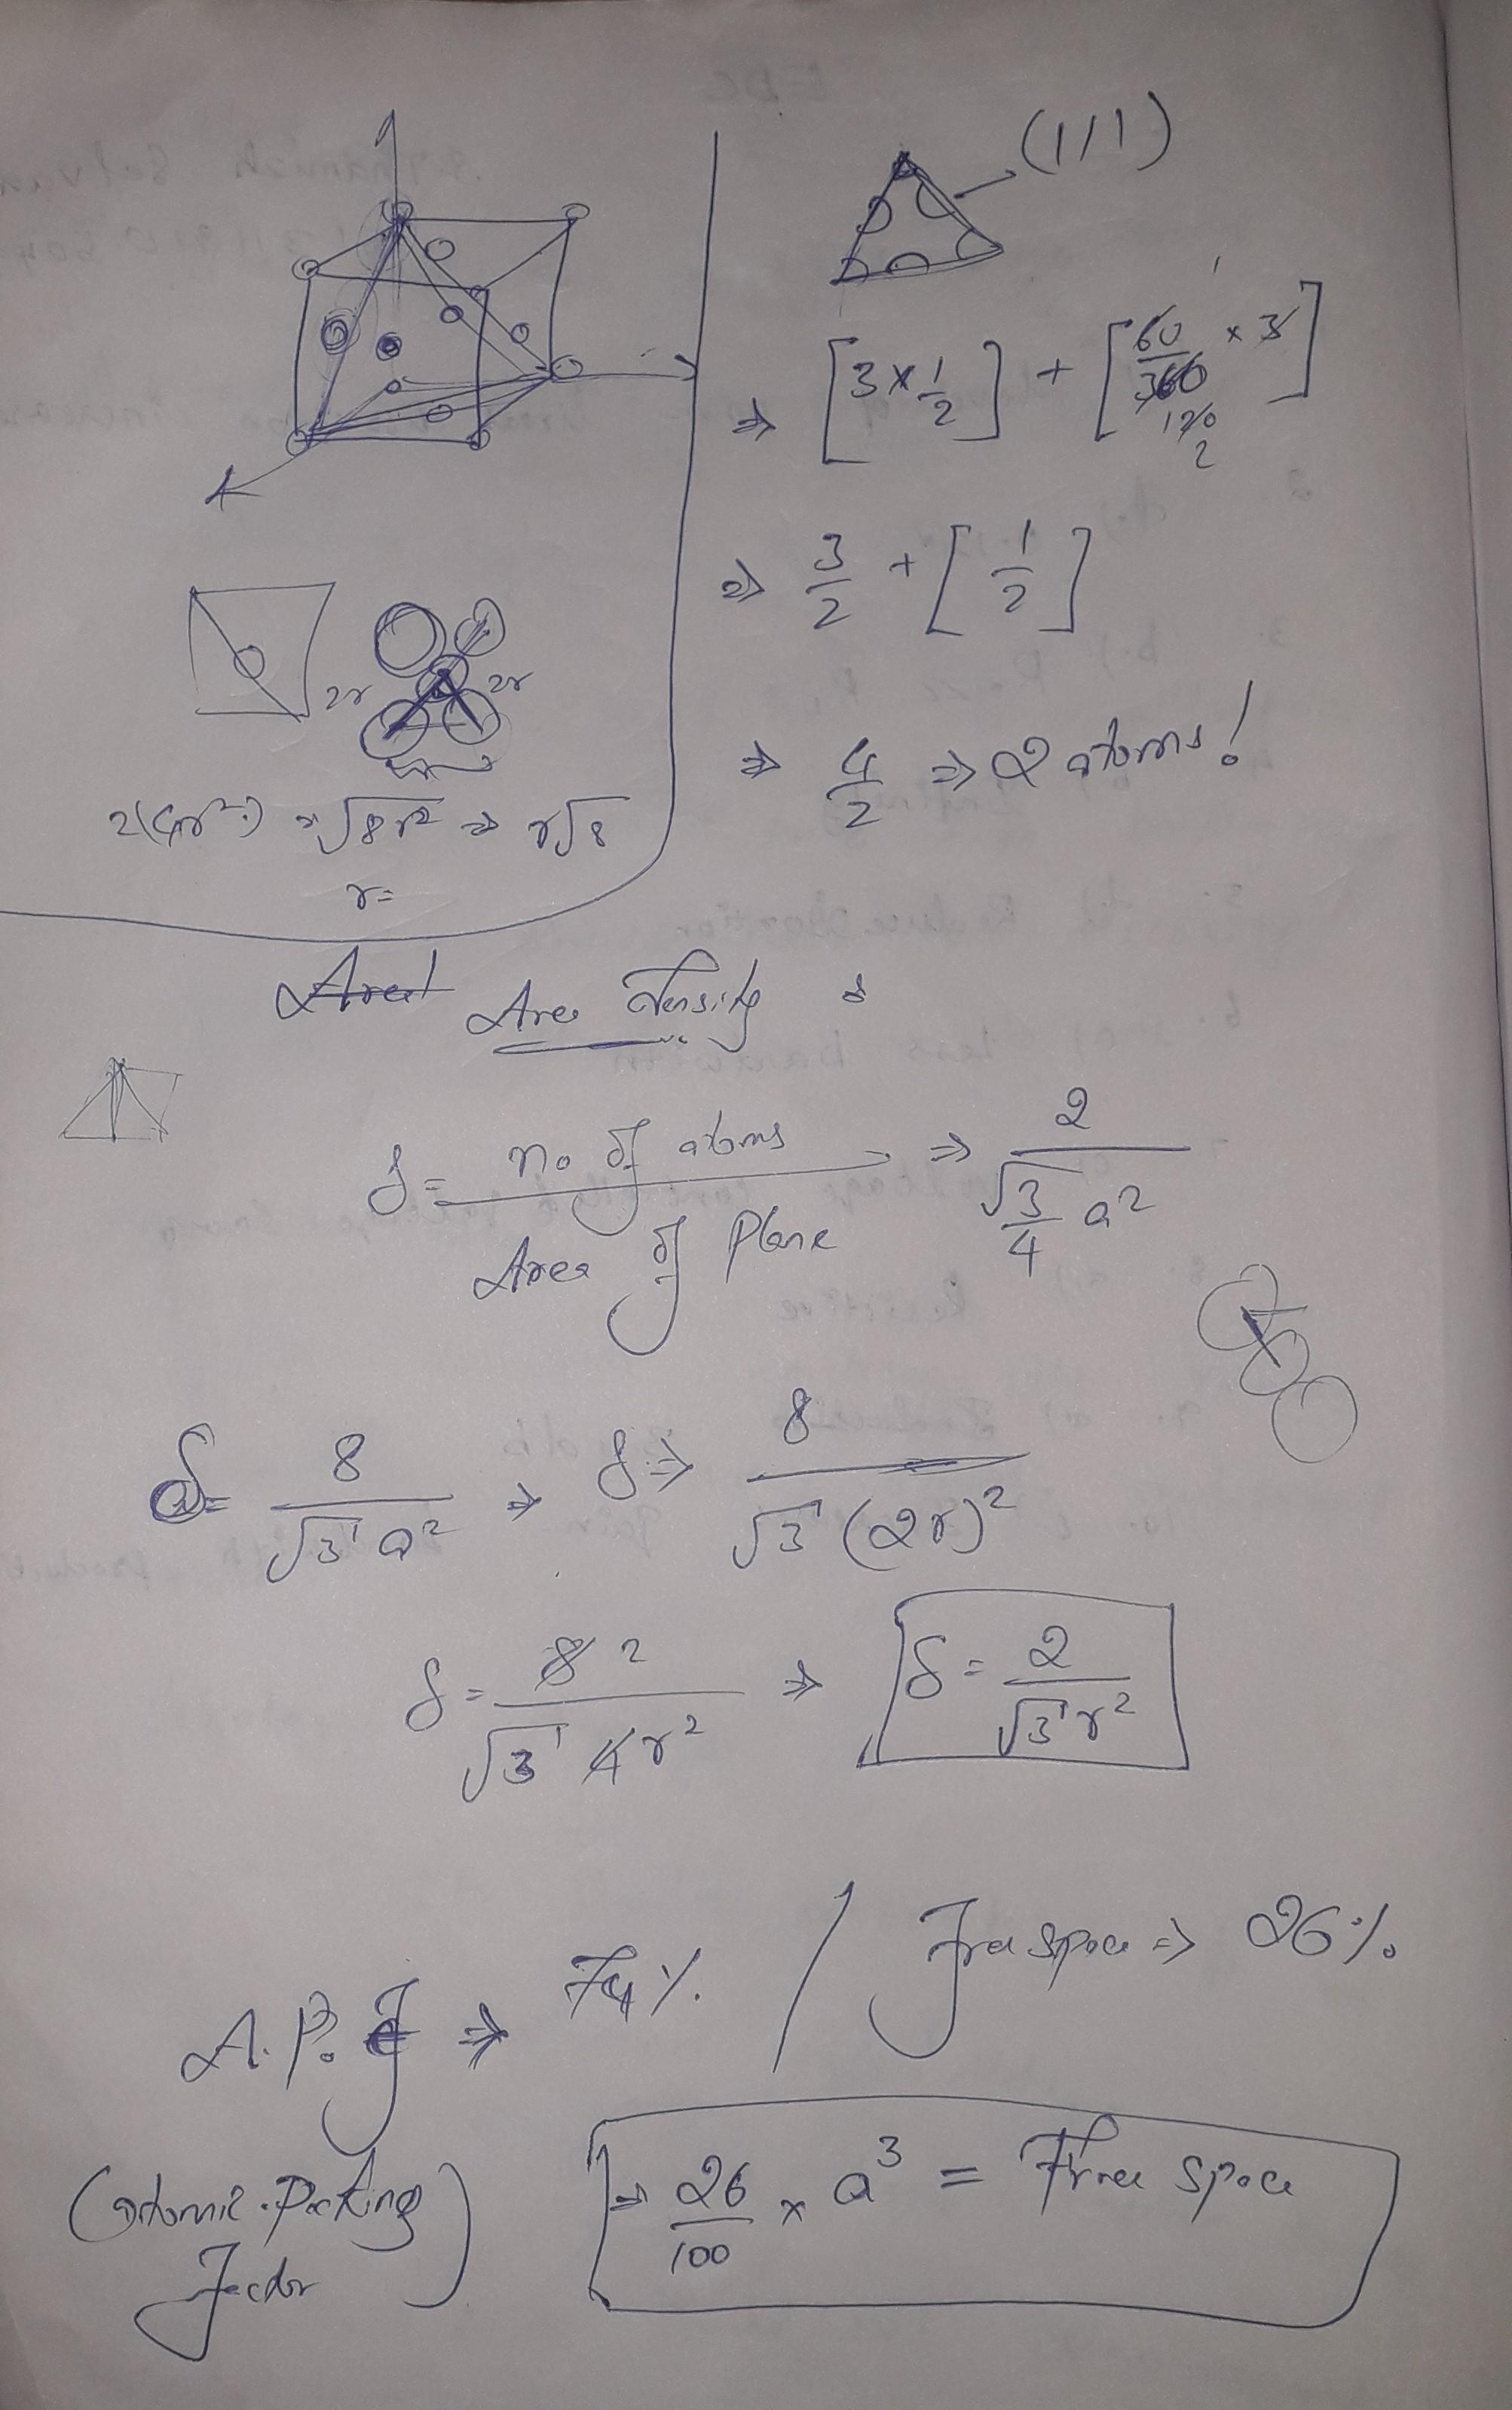 (111)
⇒ [3 × 1/2] + [60/360 × 3]
120
2
⇒ 3/2 + [1/2]
⇒ 4/2 ⇒ 2 atoms!
2r 2r
2(4r²) = √8r² ⇒ r√8
r =
Area Density :
δ = no of atoms / Area of Plane ⇒ 2 / √3/4 a²
δ = 8 / √3 a² ⇒ δ ⇒ 8 / √3 (2r)²
δ = 8 2 / √3 4r² ⇒ δ = 2 / √3 r²
A.P.F ⇒ 74% / Free space ⇒ 26%
(Atomic Packing Factor)
⇒ 26/100 × a³ = Free space